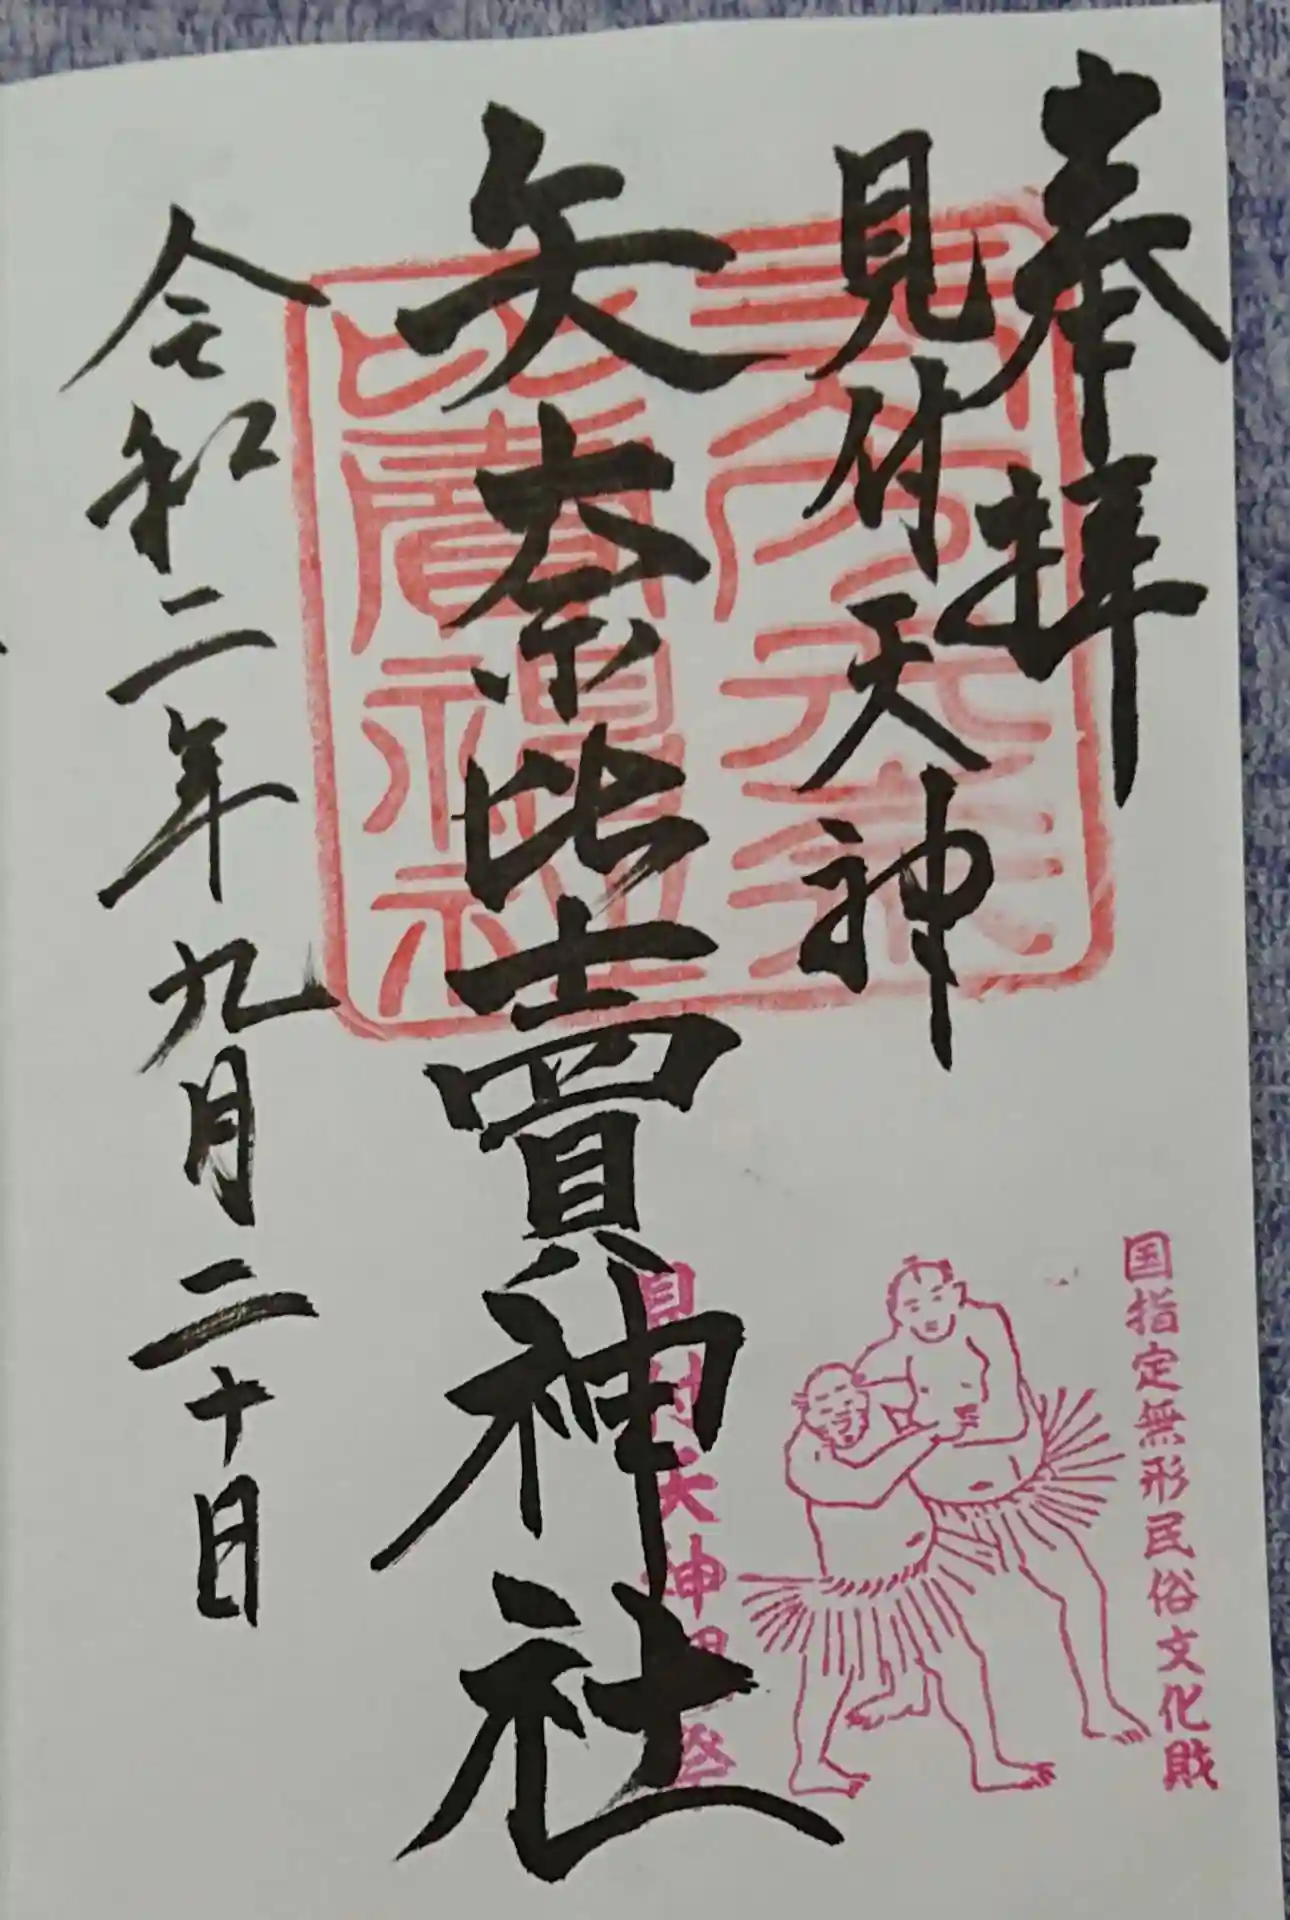 奉拝
見付天神
矢奈比賣神社
令和二年九月二十日
国指定無形民俗文化財
見付天神裸祭